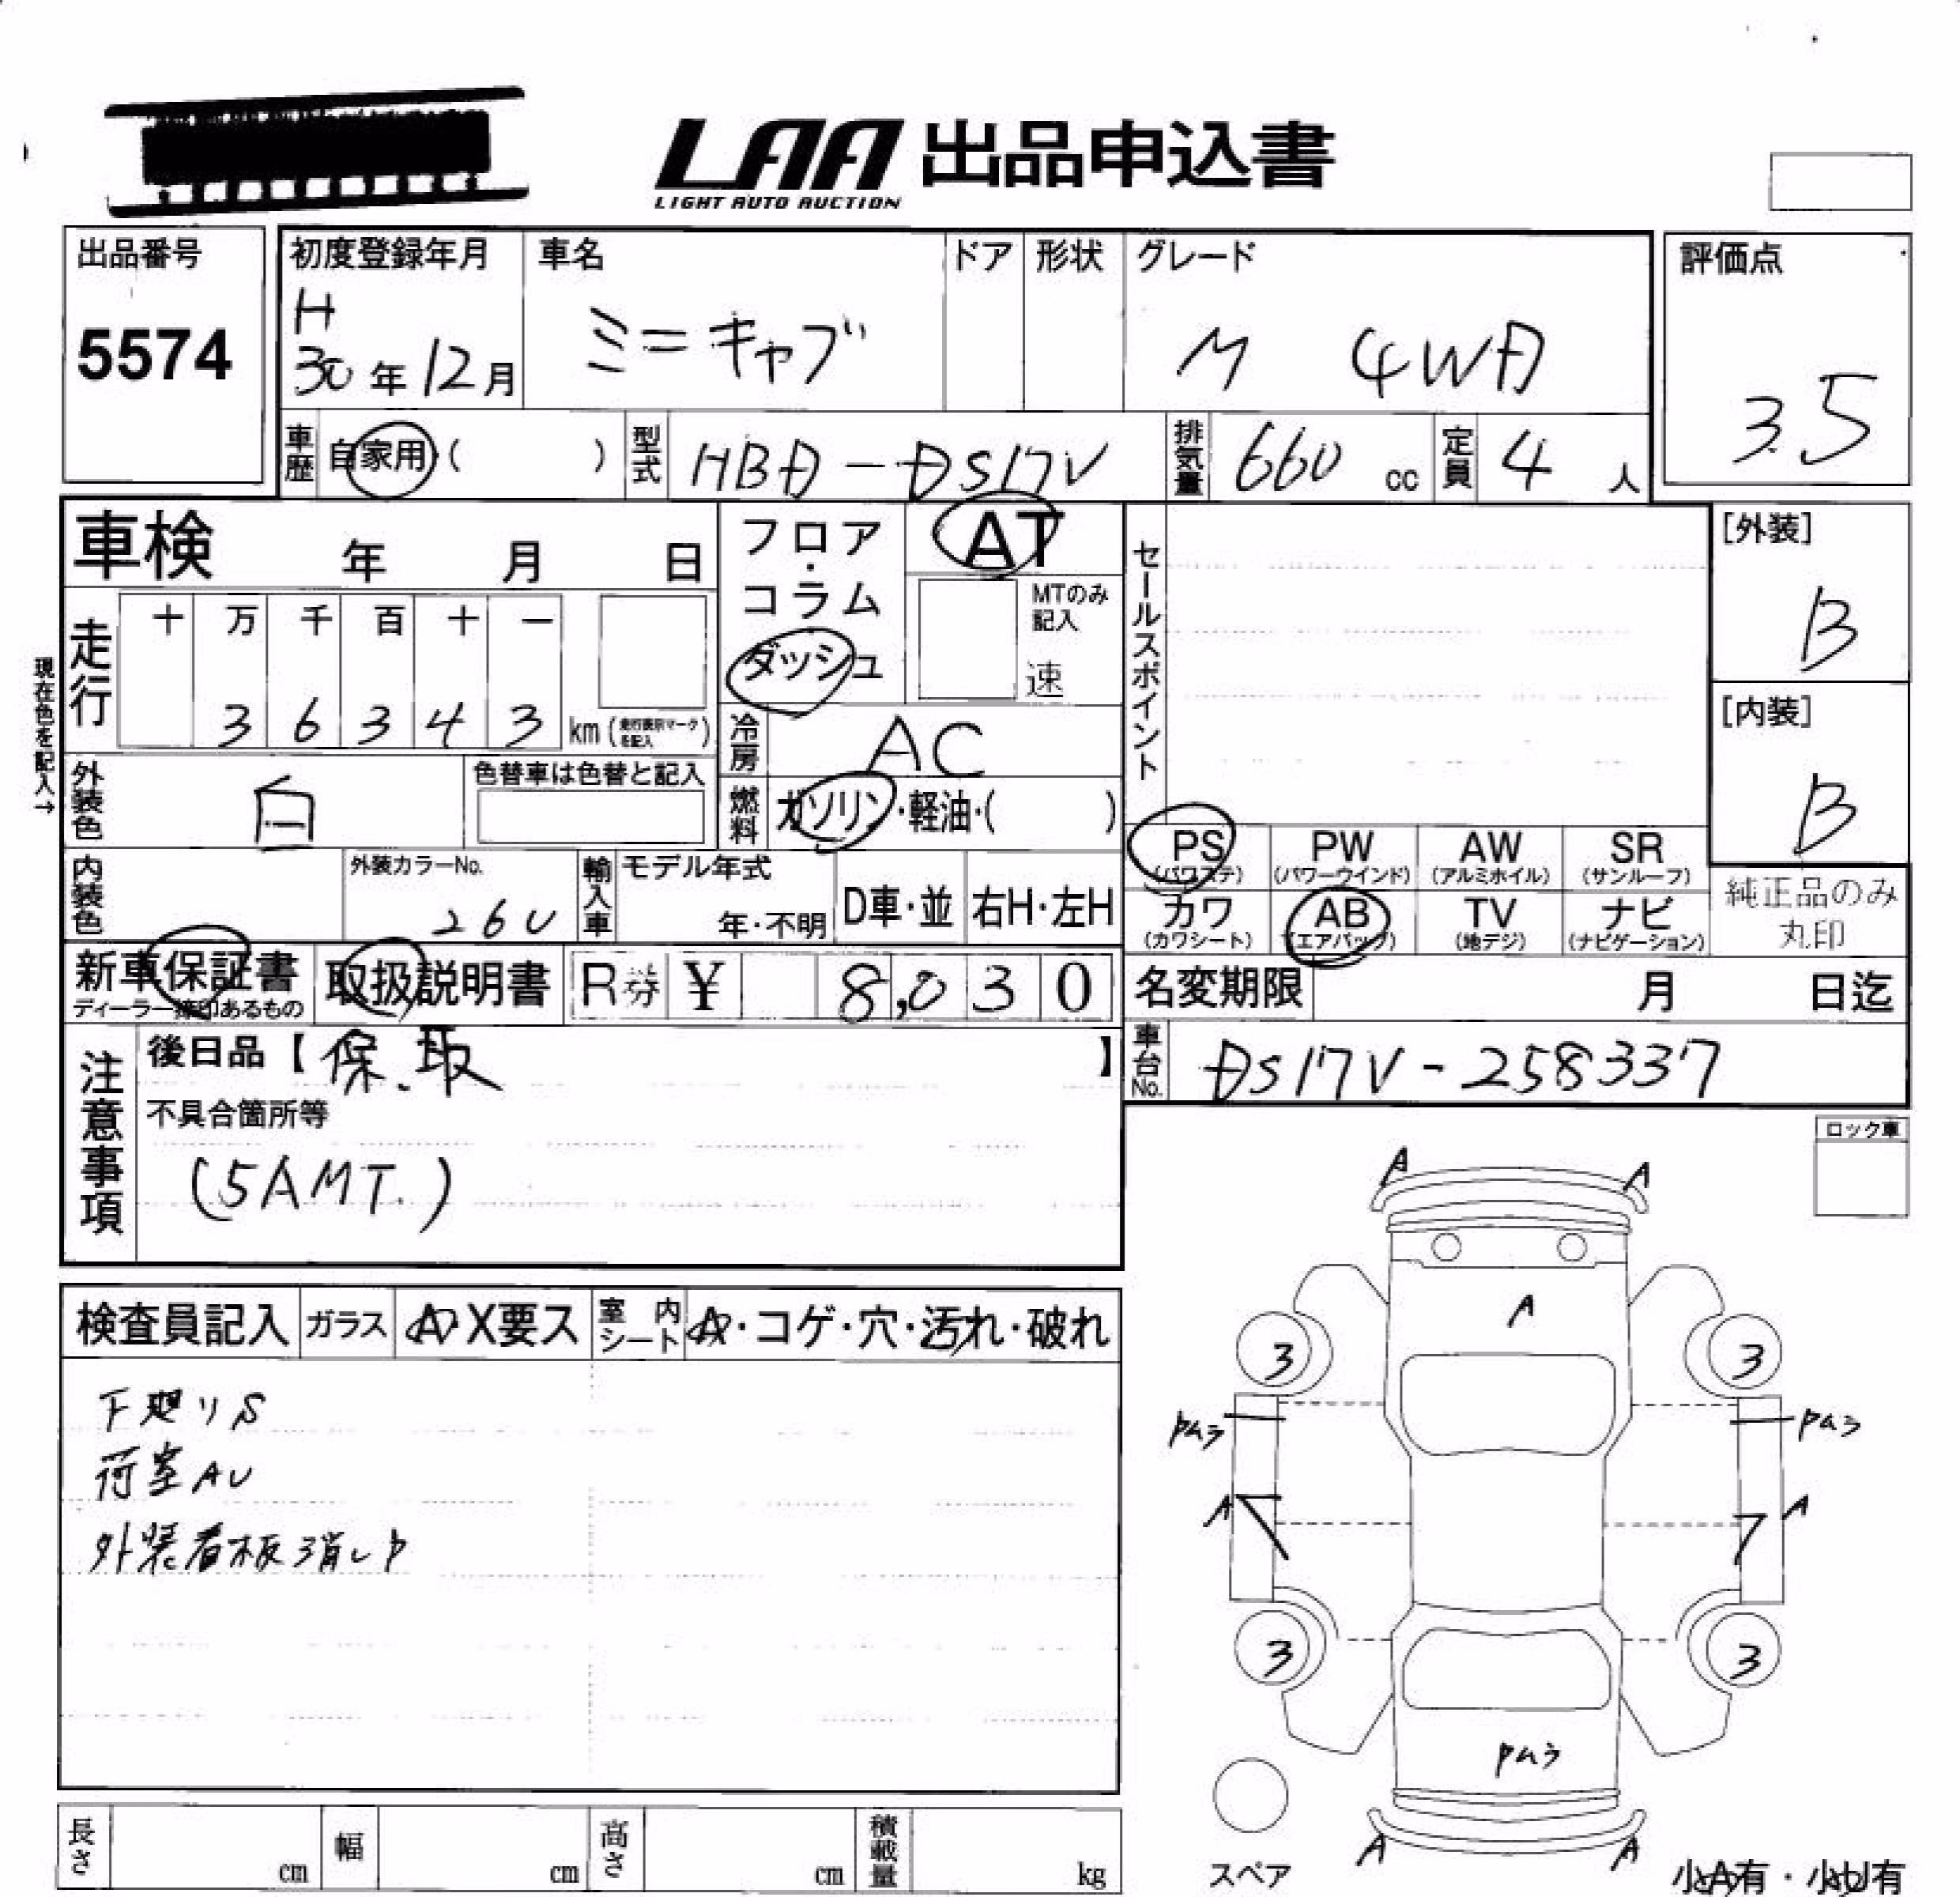 LAA 出品申込書
LIGHT AUTO AUCTION
出品番号
5574
初度登録年月
H
30年12月
車名
ミニキャブ
ドア
形状
グレード
M 4WD
評価点
3.5
車歴
自家用・( )
型式
HBD-DS17V
排気量
660 cc
定員
4 人
車検 年 月 日
フロア・
コラム
ダッシュ
AT
MTのみ
記入
速
セールスポイント
[外装]
B
[内装]
B
現在色を記入→
走行
十 万 千 百 十 一
3 6 3 4 3 km (走行表示マークを記入)
冷房
AC
外装色
白
色替車は色替と記入
燃料
ガソリン・軽油・( )
内装色
外装カラーNo.
26U
輸入車
モデル年式
年・不明
D車・並
右H・左H
PS
(パワステ)
PW
(パワーウインド)
AW
(アルミホイル)
SR
(サンルーフ)
カワ
(カワシート)
AB
(エアバッグ)
TV
(地デジ)
ナビ
(ナビゲーション)
純正品のみ
丸印
新車保証書
ディーラー捺印あるもの
取扱説明書
R券 ¥ 8,030
名変期限 月 日迄
注意事項
後日品【保.取 】
不具合箇所等
(5AMT.)
車台No.
DS17V-258337
ロック車
検査員記入
ガラス
A・X要ス
室内シート
A・コゲ・穴・汚れ・破れ
下廻りS
荷室AU
外装看板消しP
A
A
A
3
3
Pムラ
Pムラ
A
A
3
3
Pムラ
A
A
スペア
小A有・小U有
長さ cm
幅 cm
高さ cm
積載量 kg